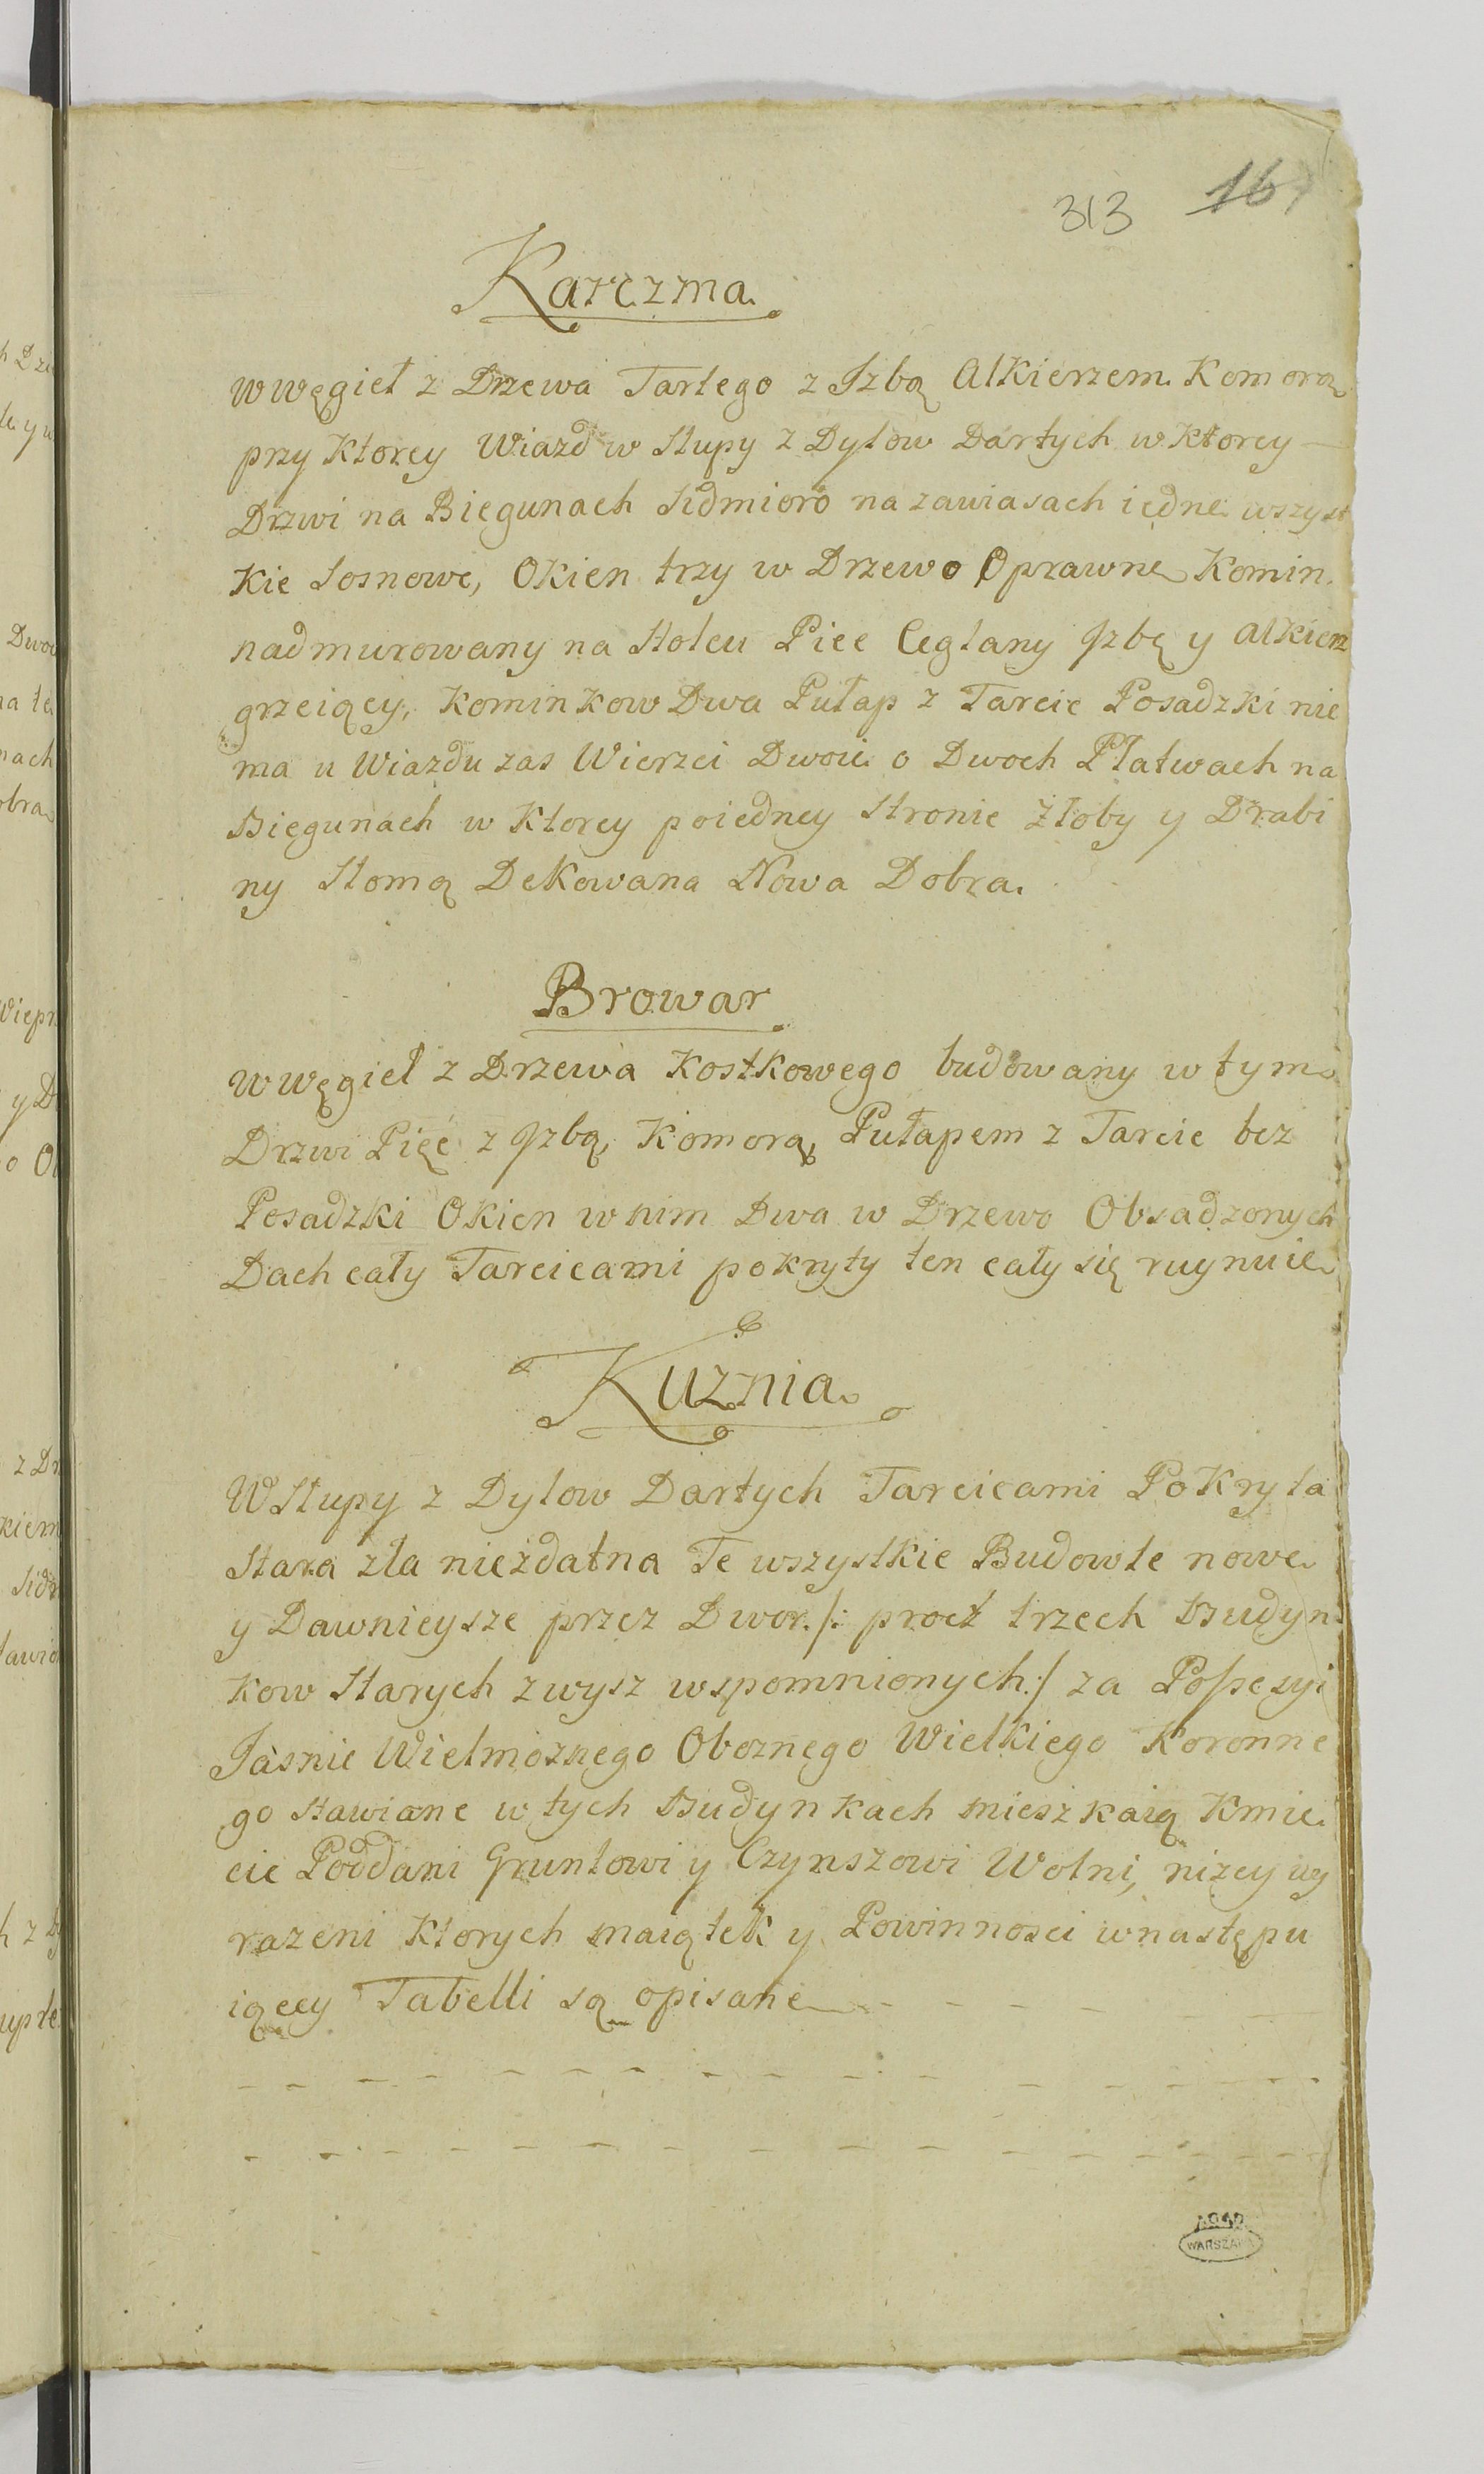 313 16
Karczma.
w węgieł z Drzewa Tartego z Izbą Alkierzem Komorą
przy Ktorey Wiazd w Słupy z Dylow Dartych w Ktorey
Drzwi na Biegunach Siedmioro na zawiasach iedne wszyst
kie Sosnowe, Okien trzy w Drzewo Oprawne Komin
nadmurowany na Stolcu Piec Ceglany Izbę y Alkierz
grzeiący, Kominkow Dwa Pułap z Tarcic Posadzki nie
ma u Wiazdu zas Wierzei Dwoie o Dwoch Płatwach na
Biegunach w Ktorey poiedney Stronie Złoby y Drabi
ny Słomą Dekowana Nowa Dobra.
Browar
w węgieł z Drzewa Kostkowego budowany w tym
Drzwi Pięć z Izbą, Komorą, Pułapem z Tarcic bez
Posadzki Okien w nim Dwa w Drzewo Obsadzonych
Dach cały Tarcicami pokryty ten cały się ruynuie
Kuznia.
W Słupy z Dylow Dartych Tarcicami Pokryta
Stara zła nieżdatna Te wszystkie Budowle nowe
y Dawnieysze przez Dwor /: procż trzech Budyn
kow Starych zwysz wspomnionych :/ za Possesyi
Jasnie Wielmoznego Oboznego Wielkiego Koronne
go stawiane w tych Budynkach mieszkaią Kmie
cie Poddani Gruntowi y Czynszowi Wolni, nizey wy
razeni Ktorych maiątek y Powinnosci w następu
iącey Tabelli są opisane
AGAD
WARSZAWA